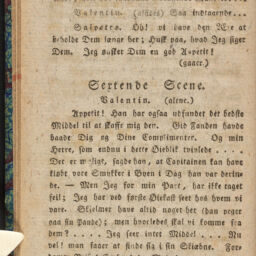 Valentin. (afsides) Saa indtagende...
Salvatte. Ah! vi have den Ære at
beholde Dem længe her; Husk paa, hvad Jeg siger
Dem. Jeg ønsker Dem en god Appetit!
(gaaer.)
Sextende Scene.
Valentin. (alene.)
Appetit! Han har ogsaa udfundet det bedste
Middel til at skaffe mig den. Gid Fanden havde
baade Dig og Dine Complimenter. Og min
Herre, som endnu i dette Øieblik tvivlede ....
Det er muligt, sagde han, at Capitainen kan have
kiøbt vore Smykker i Byen i Dag han var herin-
de. — Men Jeg for min Part, har ikke taget
feil; Jeg har ved første Øiekast seet hos hvem vi
vare. Skjelmer have altid noget her (han peger
paa sin Pande); men hvorledes skal vi komme fra
dem? .... Jeg seer intet Middel.... Nu
vel! man faaer at finde sig i sin Skiæbne. For-